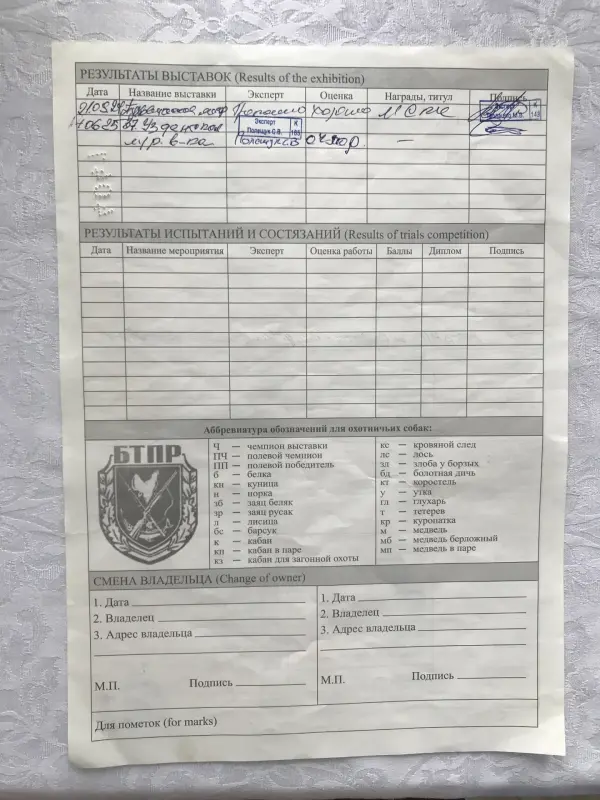 РЕЗУЛЬТАТЫ ВЫСТАВОК (Results of the exhibition)
Дата Название выставки Эксперт Оценка Награды, титул Подпись
хорошо
Эксперт Полещук С.В. К 165
РЕЗУЛЬТАТЫ ИСПЫТАНИЙ И СОСТЯЗАНИЙ (Results of trials competition)
Дата Название мероприятия Эксперт Оценка работы Баллы Диплом Подпись
Аббревиатура обозначений для охотничьих собак:
БТПР
Ч — чемпион выставки
ПЧ — полевой чемпион
ПП — полевой победитель
б — белка
кн — куница
н — норка
зб — заяц беляк
зр — заяц русак
л — лисица
бс — барсук
к — кабан
кп — кабан в паре
кз — кабан для загонной охоты
кс — кровяной след
лс — лось
зл — злоба у борзых
бд — болотная дичь
кт — коростель
у — утка
гл — глухарь
т — тетерев
кр — куропатка
м — медведь
мб — медведь берложный
мп — медведь в паре
СМЕНА ВЛАДЕЛЬЦА (Change of owner)
1. Дата
2. Владелец
3. Адрес владельца
М.П. Подпись
1. Дата
2. Владелец
3. Адрес владельца
М.П. Подпись
Для пометок (for marks)